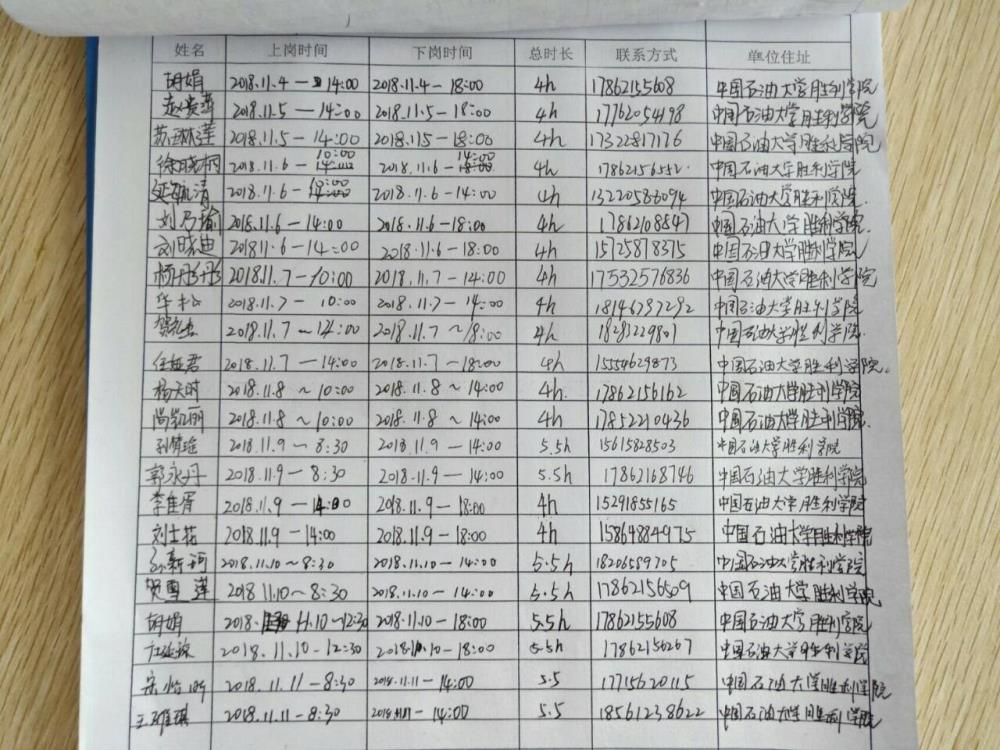 姓名 上岗时间 下岗时间 总时长 联系方式 单位住址
胡娟 2018.11.4—14:00 2018.11.4—18:00 4h 17862155608 中国石油大学胜利学院
赵贵萍 2018.11.5—14:00 2018.11.5—18:00 4h 17762054198 中国石油大学胜利学院
苏琳莲 2018.11.5-14:00 2018.115-18:00 4h 17322817176 中国石油大学胜利学院
徐晓桐 2018.11.6—10:00 2018.11.6—14:00 4h 17862156552. 中国石油大学胜利学院
2018.11.6-10:00 2018.11.6-14:00 4h 13220586094 中国石油大学胜利学院.
刘乃瑜 2018.11.6-14:00 2018.11.6-18:00 4h 17862108847 中国石油大学胜利学院.
刘晓迪 201811.6-14:00 2018.11.6-18:00 4h 15725878375 中国石油大学胜利学院
杨彤彤 2018.11.7-10:00 2018.11.7-14:00 4h 17532576836 中国石油大学胜利学院
华松 2018.11.7- 10:00 2018.11.7-14:00 4h 18146737292 中国石油大学胜利学院
2018.11.7~14:00 2018.11.7~18:00 4h 18281229801 中国石油大学胜利学院.
任姬君 2018.11.7—14:00 2018.11.7—18:00 4h 15554629873 中国石油大学胜利学院.
杨天时 2018.11.8~10:00 2018.11.8~14:00 4h. 17862156162 中国石油大学胜利学院.
尚凯丽 2018.11.8~10:00 2018.11.8~14:00 4h 17852210436 中国石油大学胜利学院.
2018.11.9-8:30 2018.11.9-14:00 5.5h 15615828503 中国石油大学胜利学院
郭永丹 2018.11.9-8:30 2018.11.9-14:00 5.5h 17862168746 中国石油大学胜利学院
李佳胥 2018.11.9-14:00 2018.11.9-18:00 4h 15291855165 中国石油大学胜利学院
刘士菘 2018.11.9-14:00 2018.11.9-18:00 4h 15864884975 中国石油大学胜利学院
孙新珂 2018.11.10~8:30 2018.11.10-14:00 5.5h 18206589705 中国石油大学胜利学院
贾雪莲 2018 11.10~8:30 2018.11.10-14:00 5.5h 17862156509 中国石油大学胜利学院
胡娟 2018.11.10-12:30 2018.11.10-18:00 5.5h 17862155608 中国石油大学胜利学院
2018.11.10-12:30 2018.11.10-18:00 5.5h 17862156267 中国石油大学胜利学院
宋怡昕 2018.11.11-8:30 2018.11.11-14:00 5.5 17715620115 中国石油大学胜利学院
王雅琪 2018.11.11-8:30 2018.11.11-14:00 5.5 18561238622 中国石油大学胜利学院